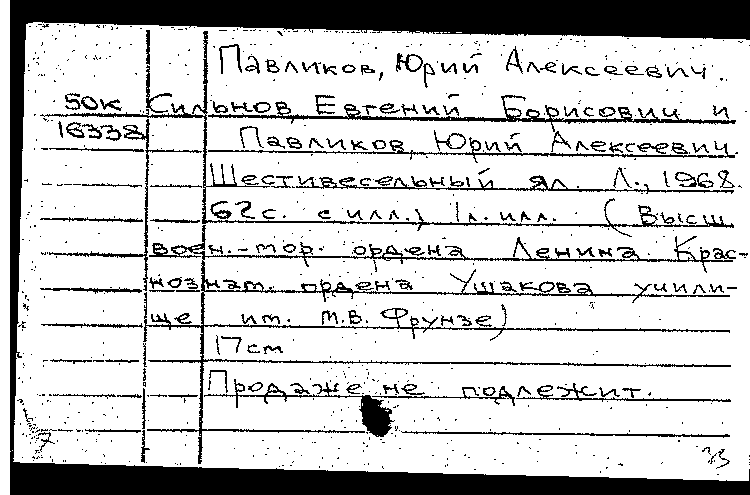 Павликов, Юрий Алексеевич.
50к Сильнов, Евгений Борисович и
16338 Павликов, Юрий Алексеевич.
Шестивесельный ял. Л., 1968.
62с. с илл.; 1л. илл. (Высш.
воен.-мор. ордена Ленина Крас-
нознам. ордена Ушакова учили-
ще им. М.В. Фрунзе)
17см
Продаже не подлежит.
7
33